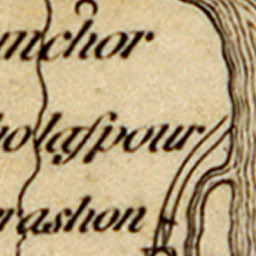 mchor
olaſpour
rashon